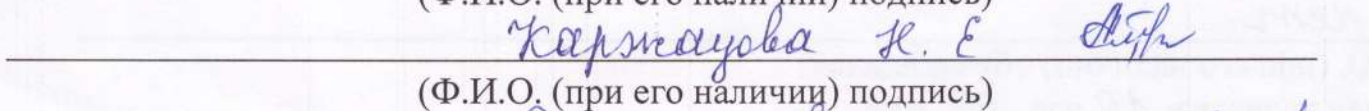 (Ф.И.О. (при его наличии) подпись)
Каржауова Н. Е
(Ф.И.О. (при его наличии) подпись)